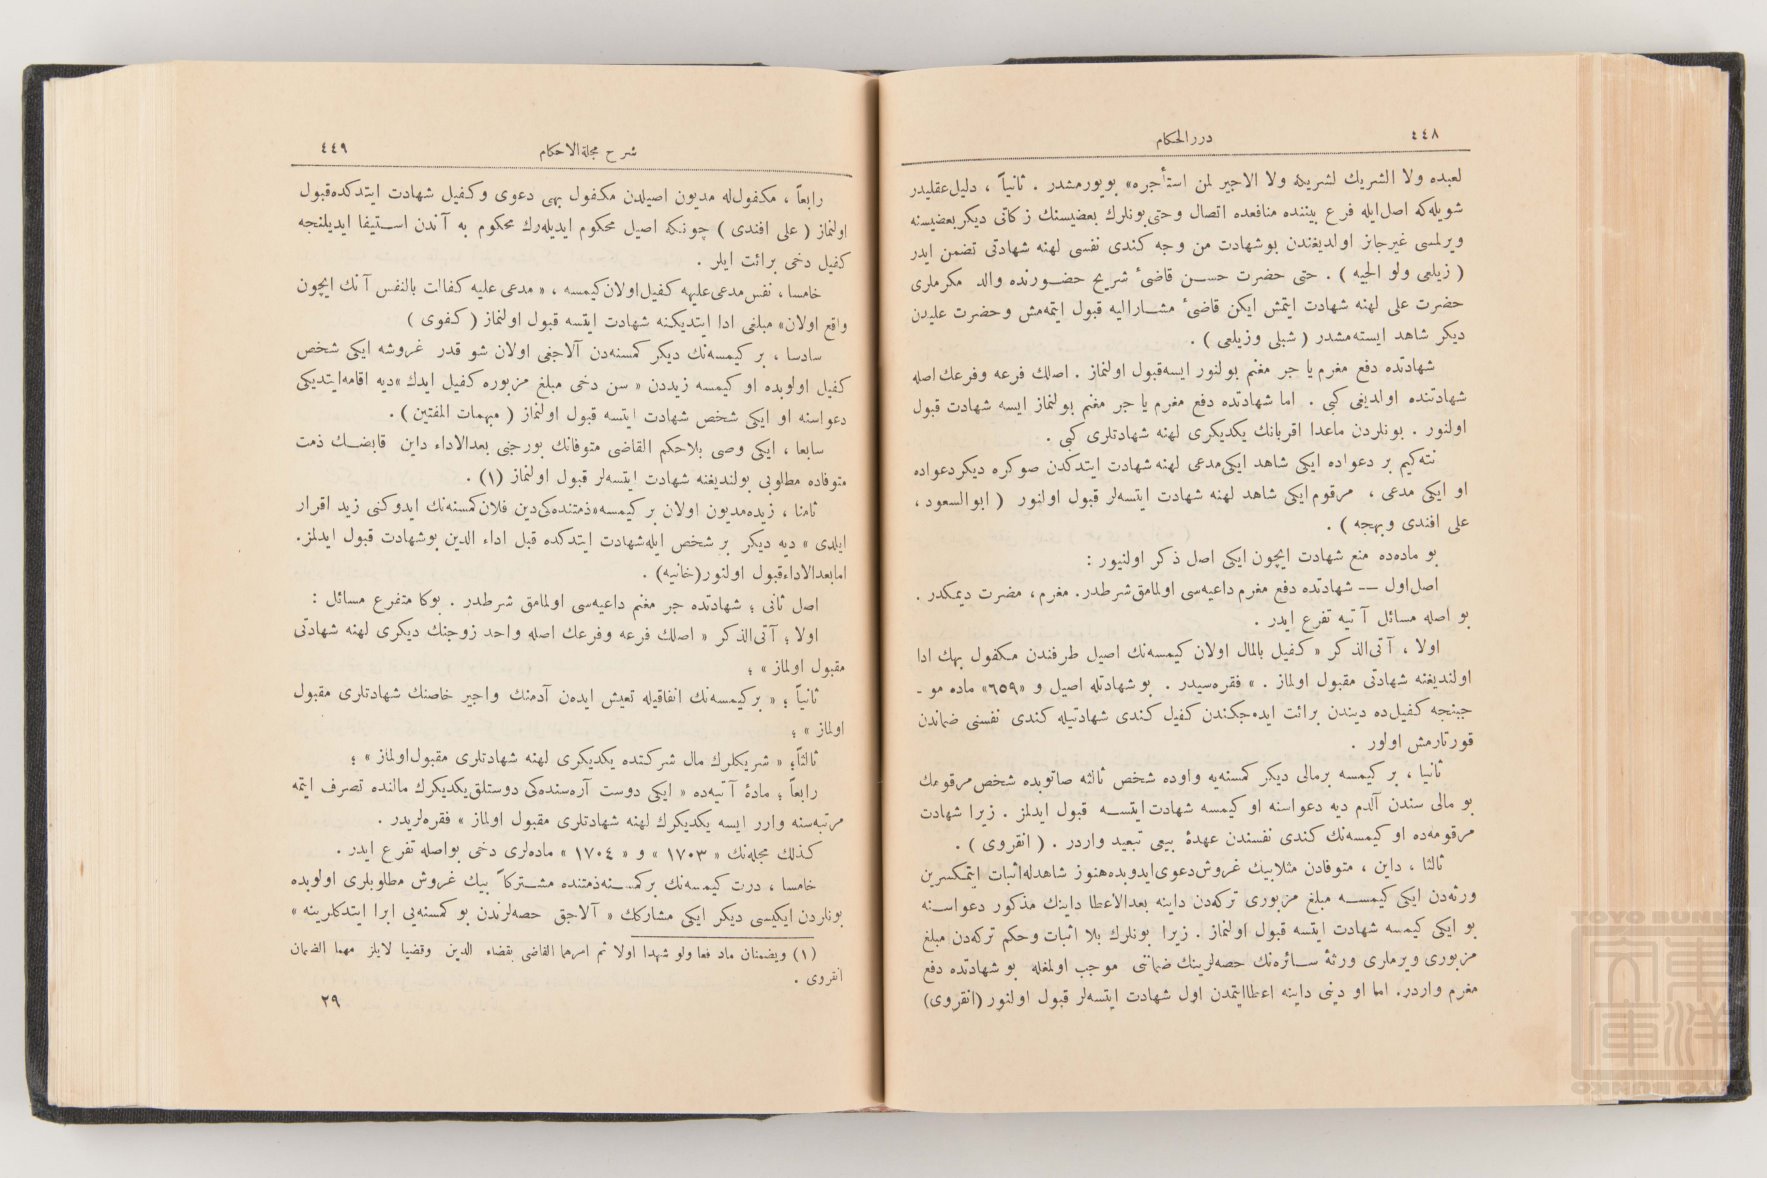 ٤٤٨
درر الحكام
لعبده ولا الشريك لشريكه ولا الاجير لمن استأجره» بويورمشدر . ثانياً ، دليل عقليدر
شويله كه اصل ايله فرع بيننده منافعده اتصال وحتى بونلرك بعضيسنك زكاتى ديكر بعضيسنه
ويرلمسى غير جائز اولديغندن بو شهادت من وجه كندى نفسى لهنه شهادتى تضمن ايدر
( زيلعى ولو الجيه ) . حتى حضرت حسن قاضئ شريح حضورنده والد مكرملرى
حضرت على لهنه شهادت ايتمش ايكن قاضئ مشار اليه قبول ايتمه‌مش وحضرت عليدن
ديكر شاهد ايسته‌مشدر ( شبلى وزيلعى ) .
شهادتده دفع مغرم يا جر مغنم بولنور ايسه قبول اولنماز . اصلك فرعه وفرعك اصله
شهادتنده اولديغى كبى . اما شهادتده دفع مغرم يا جر مغنم بولنماز ايسه شهادت قبول
اولنور . بونلردن ماعدا اقربانك يكديكرى لهنه شهادتلرى كبى .
نته‌كيم بر دعواده ايكى شاهد ايكى مدعى لهنه شهادت ايتدكدن صوكره ديكر دعواده
او ايكى مدعى ، مرقوم ايكى شاهد لهنه شهادت ايتسه‌لر قبول اولنور ( ابو السعود ،
على افندى وبهجه ) .
بو ماده‌ده منع شهادت ايچون ايكى اصل ذكر اولنيور :
اصل اول — شهادتده دفع مغرم داعيه‌سى اولمامق شرطدر. مغرم، مضرت ديمكدر .
بو اصله مسائل آتيه تفرع ايدر .
اولا ، آتى الذكر « كفيل بالمال اولان كيمسه‌نك اصيل طرفندن مكفول بهك ادا
اولنديغنه شهادتى مقبول اولماز . » فقره‌سيدر . بو شهادتله اصيل و «٦٥٩» ماده مو -
جبنجه كفيل‌ده ديندن برائت ايده‌جكندن كفيل كندى شهادتيله كندى نفسنى ضماندن
قورتارمش اولور .
ثانيا ، بر كيمسه برمالى ديكر كمسنه‌يه واوده شخص ثالثه صاتوبده شخص مرقومك
بو مالى سندن آلدم ديه دعواسنه او كيمسه شهادت ايتسه قبول ايدلمز . زيرا شهادت
مرقومه‌ده او كيمسه‌نك كندى نفسندن عهدۀ بيعى تبعيد واردر . ( انقروى ) .
ثالثا ، داين ، متوفادن مثلا بيك غروش دعوى ايدوبده هنوز شاهدله اثبات ايتمكسزين
ورثه‌دن ايكى كيمسه مبلغ مزبورى تركه‌دن داينه بعد الاعطا داينك مذكور دعواسنه
بو ايكى كيمسه شهادت ايتسه قبول اولنماز . زيرا بونلرك بلا اثبات وحكم تركه‌دن مبلغ
مزبورى ويرملرى ورثۀ سائره‌نك حصه‌لرينك ضمانى موجب اولمغله بو شهادتده دفع
مغرم واردر. اما او دينى داينه اعطا ايتمدن اول شهادت ايتسه‌لر قبول اولنور (انقروى)
شرح مجلة الاحكام
٤٤٩
رابعاً ، مكفول له مديون اصيلدن مكفول بهى دعوى وكفيل شهادت ايتدكده قبول
اولنماز ( على افندى ) چونكه اصيل محكوم ايديله‌رك محكوم به آندن استيفا ايديلنجه
كفيل دخى برائت ايلر .
خامسا ، نفس مدعى عليهه كفيل اولان كيمسه ، « مدعى عليه كفالت بالنفس آنك ايچون
واقع اولان» مبلغى ادا ايتديكنه شهادت ايتسه قبول اولنماز ( كفوى )
سادسا ، بر كيمسه‌نك ديكر كمسنه‌دن آلاجغى اولان شو قدر غروشه ايكى شخص
كفيل اولوبده او كيمسه زيددن « سن دخى مبلغ مزبوره كفيل ايدك »ديه اقامه ايتديكى
دعواسنه او ايكى شخص شهادت ايتسه قبول اولنماز ( مهمات المفتين ) .
سابعا ، ايكى وصى بلا حكم القاضى متوفانك بورجنى بعد الاداء داين قابضك ذمت
متوفاده مطلوبى بولنديغنه شهادت ايتسه‌لر قبول اولنماز (١) .
ثامنا ، زيده مديون اولان بر كيمسه «ذمتنده‌كى دين فلان كمسنه‌نك ايدوكنى زيد اقرار
ايلدى » ديه ديكر بر شخص ايله شهادت ايتدكده قبل اداء الدين بو شهادت قبول ايدلمز.
اما بعد الاداء قبول اولنور(خانيه) .
اصل ثانى ؛ شهادتده جر مغنم داعيه‌سى اولمامق شرطدر . بوكا متفرع مسائل :
اولا ؛ آتى الذكر « اصلك فرعه وفرعك اصله واحد زوجنك ديكرى لهنه شهادتى
مقبول اولماز » ؛
ثانياً ؛ « بر كيمسه‌نك انفاقيله تعيش ايده‌ن آدمنك واجير خاصنك شهادتلرى مقبول
اولماز » ؛
ثالثاً؛ « شريكلرك مال شركتده يكديكرى لهنه شهادتلرى مقبول اولماز » ؛
رابعاً ؛ مادۀ آتيه‌ده « ايكى دوست آره‌سنده‌كى دوستلق يكديكرك مالنده تصرف ايتمه
مرتبه‌سنه وارر ايسه يكديكرك لهنه شهادتلرى مقبول اولماز » فقره‌لريدر .
كذلك مجله‌نك « ١٧٠٣ » و « ١٧٠٤ » ماده‌لرى دخى بو اصله تفرع ايدر .
خامسا ، درت كيمسه‌نك بر كمسنه ذمتنده مشتركاً بيك غروش مطلوبلرى اولوبده
بونلردن ايكيسى ديكر ايكى مشاركك « آلاجق حصه‌لرندن بو كمسنه‌يى ابرا ايتدكلرينه »
(١) ويضمنان ماد فعا ولو شهدا اولا ثم امرهما القاضى بقضاء الدين وقضيا لايلز مهما الضمان
انقروى .
٢٩
TOYO BUNKO
東洋文庫
TOYO BUNKO